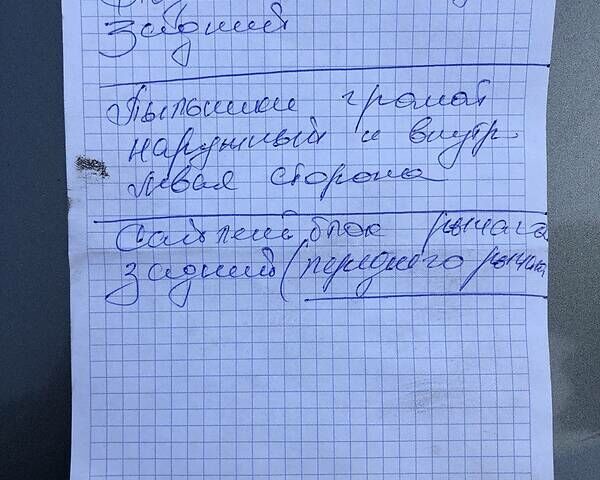 Задний
Пыльники гранат
наружный и внутр.
левая сторона
Сайленблок рычага
задний (переднего рычага